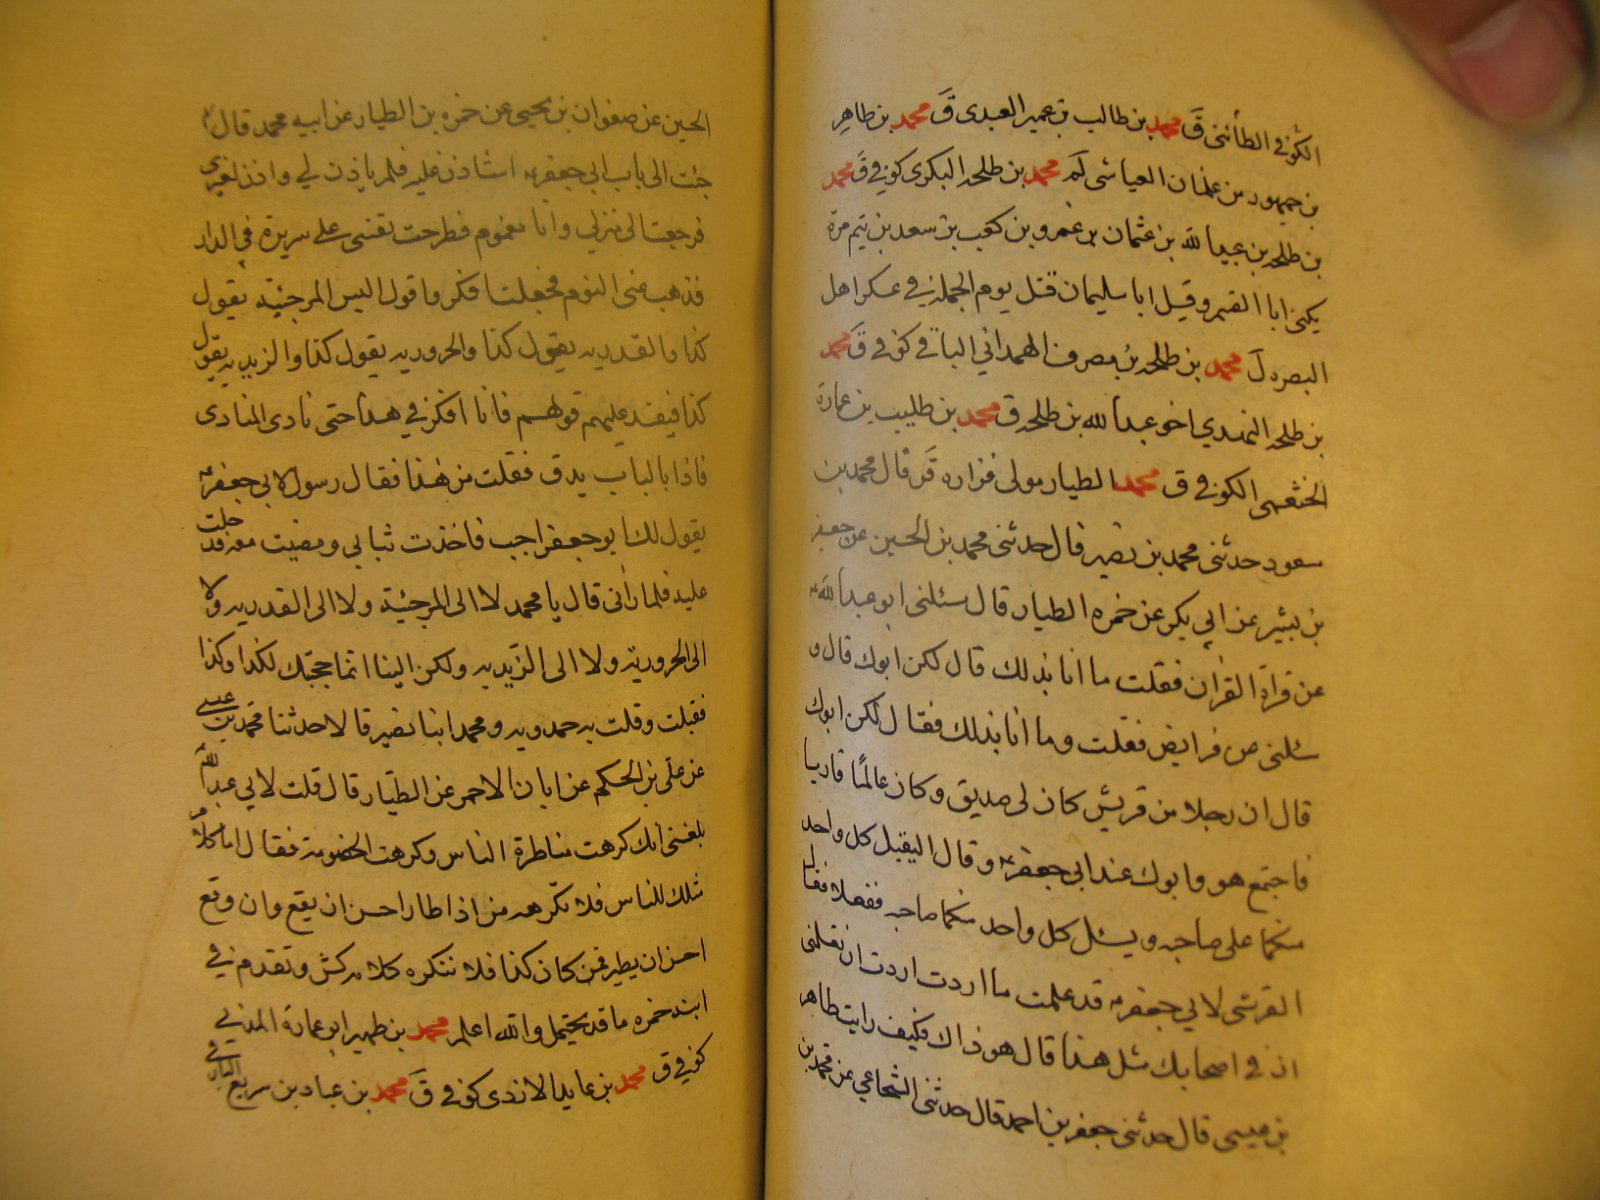 الكوفي الطائي ق محمد بن طالب بن عمير العبدي ق محمد بن طاهر
بن جمهور من غلمان العياشي لم محمد بن طلحه البكري كوفي ق محمد
بن طلحه بن عبيد الله بن عثمان بن عمرو بن كعب بن سعد بن تيم مرة
يكنى ابا القسم وقيل ابا سليمان قتل يوم الجمل في عسكر اهل
البصره ل محمد بن طلحه بن مصرف الهمداني اليافي كوفي ق محمد
بن طلحه النهدي اخو عبد الله بن طلحه ق محمد بن طليب بن عمارة
الخثعمي الكوفي ق محمد الطيار مولى فزاره قر قال محمد بن
مسعود حدثني محمد بن نصير قال حدثني محمد بن الحسين عن جعفر
بن بشير عن ابي بكر عن حمزه الطيار قال سئلني ابو عبد الله ع
عن قراة القران فقلت ما انا بذلك قال لكن ابوك قال و
سئلني عن فرايض فقلت وما انا بذلك فقال لكن ابوك
قال ان رجلا من قريش كان لي صديق وكان عالما قاريا
فاجتمع هو وابوك عند ابي جعفر ع وقال اليقبل كل واحد
منكما على صاحبه ويسئل كل واحد منكما صاحبه ففعلا فقال
القرشي لابي جعفر ع قد علمت ما اردت اردت ان تعلمني
ان في اصحابك مثل هذا قال هو ذاك فكيف رايت طاهر
بن عيسى قال حدثني جعفر بن احمد قال حدثني الشجاعي عن محمد بن
الحسين عن صفوان بن يحيى عن حمزه بن الطيار عن ابيه محمد قال
جئت الى باب ابي جعفر ع استاذن عليه فلم ياذن لي واذن لغيري
فرجعت الى منزلي وانا مغموم فطرحت نفسي على سريرة في الدار
فذهب عني النوم فجعلت افكر واقول اليس المرجئية تقول
كذا والقدريه يقول كذا والحروريه يقول كذا والزيديه يقول
كذا فيفتد عليهم قولهم فانا افكر في هذا حتى نادى المنادي
فاذا بالباب يدق فقلت من هذا فقال رسول لابي جعفر ع
يقول لك ابو جعفر اجب فاخذت ثيابي ومضيت معه فدخلت
عليه فلما رأني قال يا محمد لا الى المرجئية ولا الى القدريه ولا
الى الحروريه ولا الى الزيديه ولكن الينا انما حجبتك لكذا وكذا
فقبلت وقلت به حمدويه ومحمد ابنا نصير قالا حدثنا محمد بن عيسى
عن علي بن الحكم عن ابان الاحمر عن الطيار قال قلت لابي عبد الله
بلغني انك كرهت مناظرة الناس وكرهت الخصومة فقال اما كلام
مثلك للناس فلا نكرهه من اذا طار احسن ان يقع وان وقع
احسن ان يطير فمن كان كذا فلا ننكره كلامه كش وتقدم في
ابنه حمزه ما قد يحتمل والله اعلم محمد بن ظهير ابو عمارة المدني
كوفي ق محمد بن عايد الازدي كوفي ق محمد بن عباد بن سريع البارقي